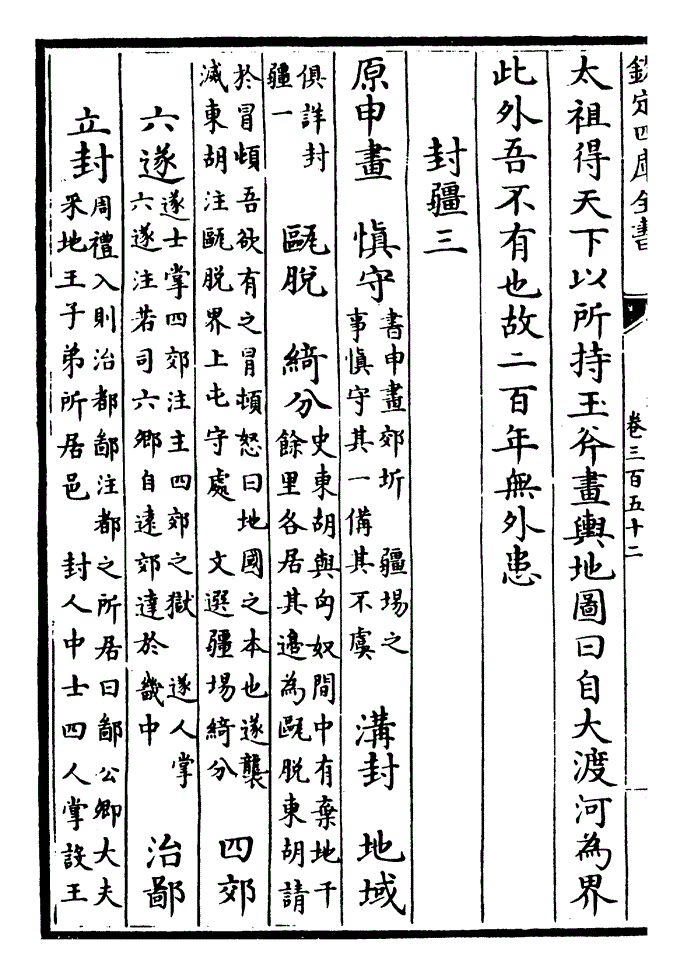 欽定四庫全書 卷三百五十二
太祖得天下以所持玉斧畫輿地圖曰自大渡河為界
此外吾不有也故二百年無外患
封疆三
原申畫 慎守 書申畫郊圻 疆場之
事慎守其一備其不虞 溝封 地域
俱詳封
疆一 甌脫 綺分 史東胡與匈奴間中有棄地千
餘里各居其邉為甌脫東胡請
於冒頓吾欲有之冒頓怒曰地國之本也遂襲
滅東胡注甌脫界上屯守處 文選疆場綺分 四郊
六遂 遂士掌四郊注主四郊之獄 遂人掌
六遂注若司六鄉自遠郊達於畿中 治鄙
立封 周禮入則治都鄙注都之所居曰鄙 公卿大夫
采地王子弟所居邑 封人中士四人掌設王